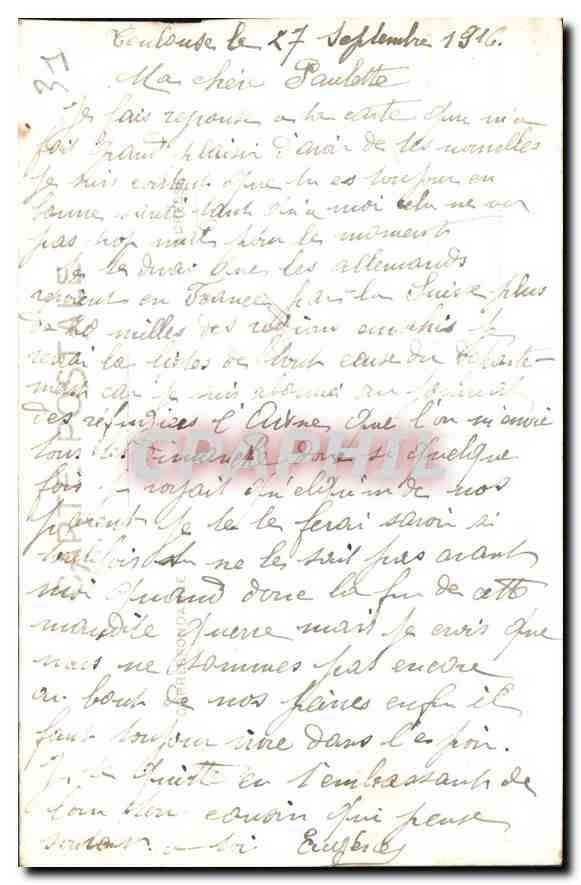 37
Toulouse le 27 Septembre 1916.
Ma chère Paulette
Je fais reponse a ta carte qui m'a
fait grand plaisir d'avoir de tes nouvelles
je suis content que tu es toujour en
bonne santé tant qu'a moi cela ne va
pas trop mal pour le moment
Je te dirai que les allemands
en France par la Suisse plus
de 20 milles des
la listes de tout ceux du
car je suis abonné au journal
des réfugiers l'Aisne que l'on m'envoie
tous les Dimanche donc si quelque
fois je voyait quelqu'un de nos
parent je te le ferai savoir si
toutefois tu ne les sait pas avant
moi quand donc la fin de cette
maudite guerre mais je crois que
nous ne sommes pas encore
au bout de nos peines enfin il
faut toujour vivre dans l'espoir.
Je te quitte en t'embrassant de
loin ton cousin qui pense
souvent a toi Eugène
CARTE POSTALE
CORRESPONDANCE
CPAPHIL